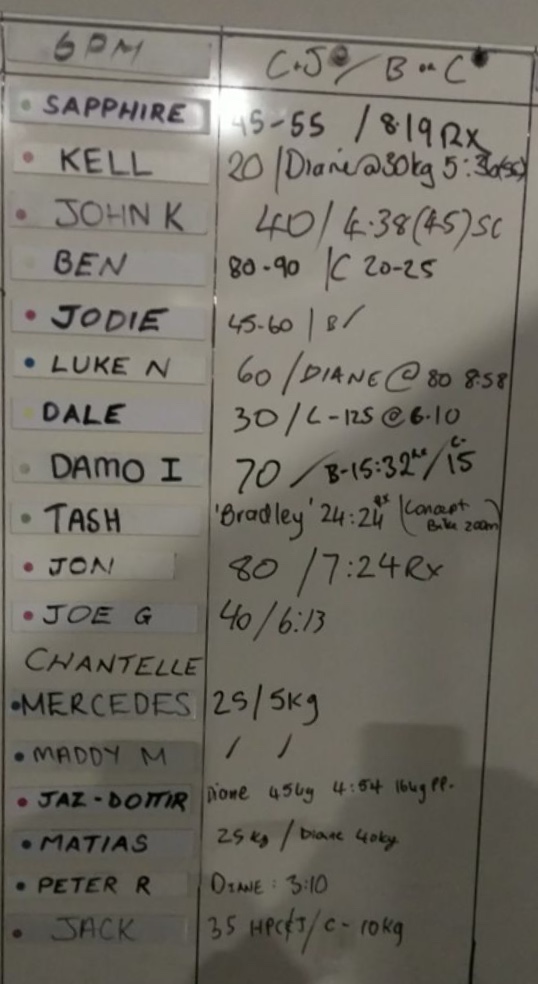 6PM C+J / B or C
SAPPHIRE 45-55 / 8:19 Rx
KELL 20 / Diane @30kg 5:36(SC)
JOHN K 40 / 4.38 (45) SC
BEN 80-90 | C 20-25
JODIE 45-60 | B /
LUKE N 60 / DIANE @ 80 8:58
DALE 30 / L-125 @ 6.10
DAMO I 70 / B-15:32 Rx / C-15
TASH 'Bradley' 24:24 Rx (Concept
Bike 200m)
JON 80 / 7:24 Rx
JOE G 40 / 6:13
CHANTELLE
MERCEDES 25 / 5kg
MADDY M / /
JAZ-DOTTIR Diane 45kg 4:54 16kg PP.
MATIAS 25kg / Diane 40kg
PETER R DIANE: 3:10
JACK 35 HPC&J / C-10kg